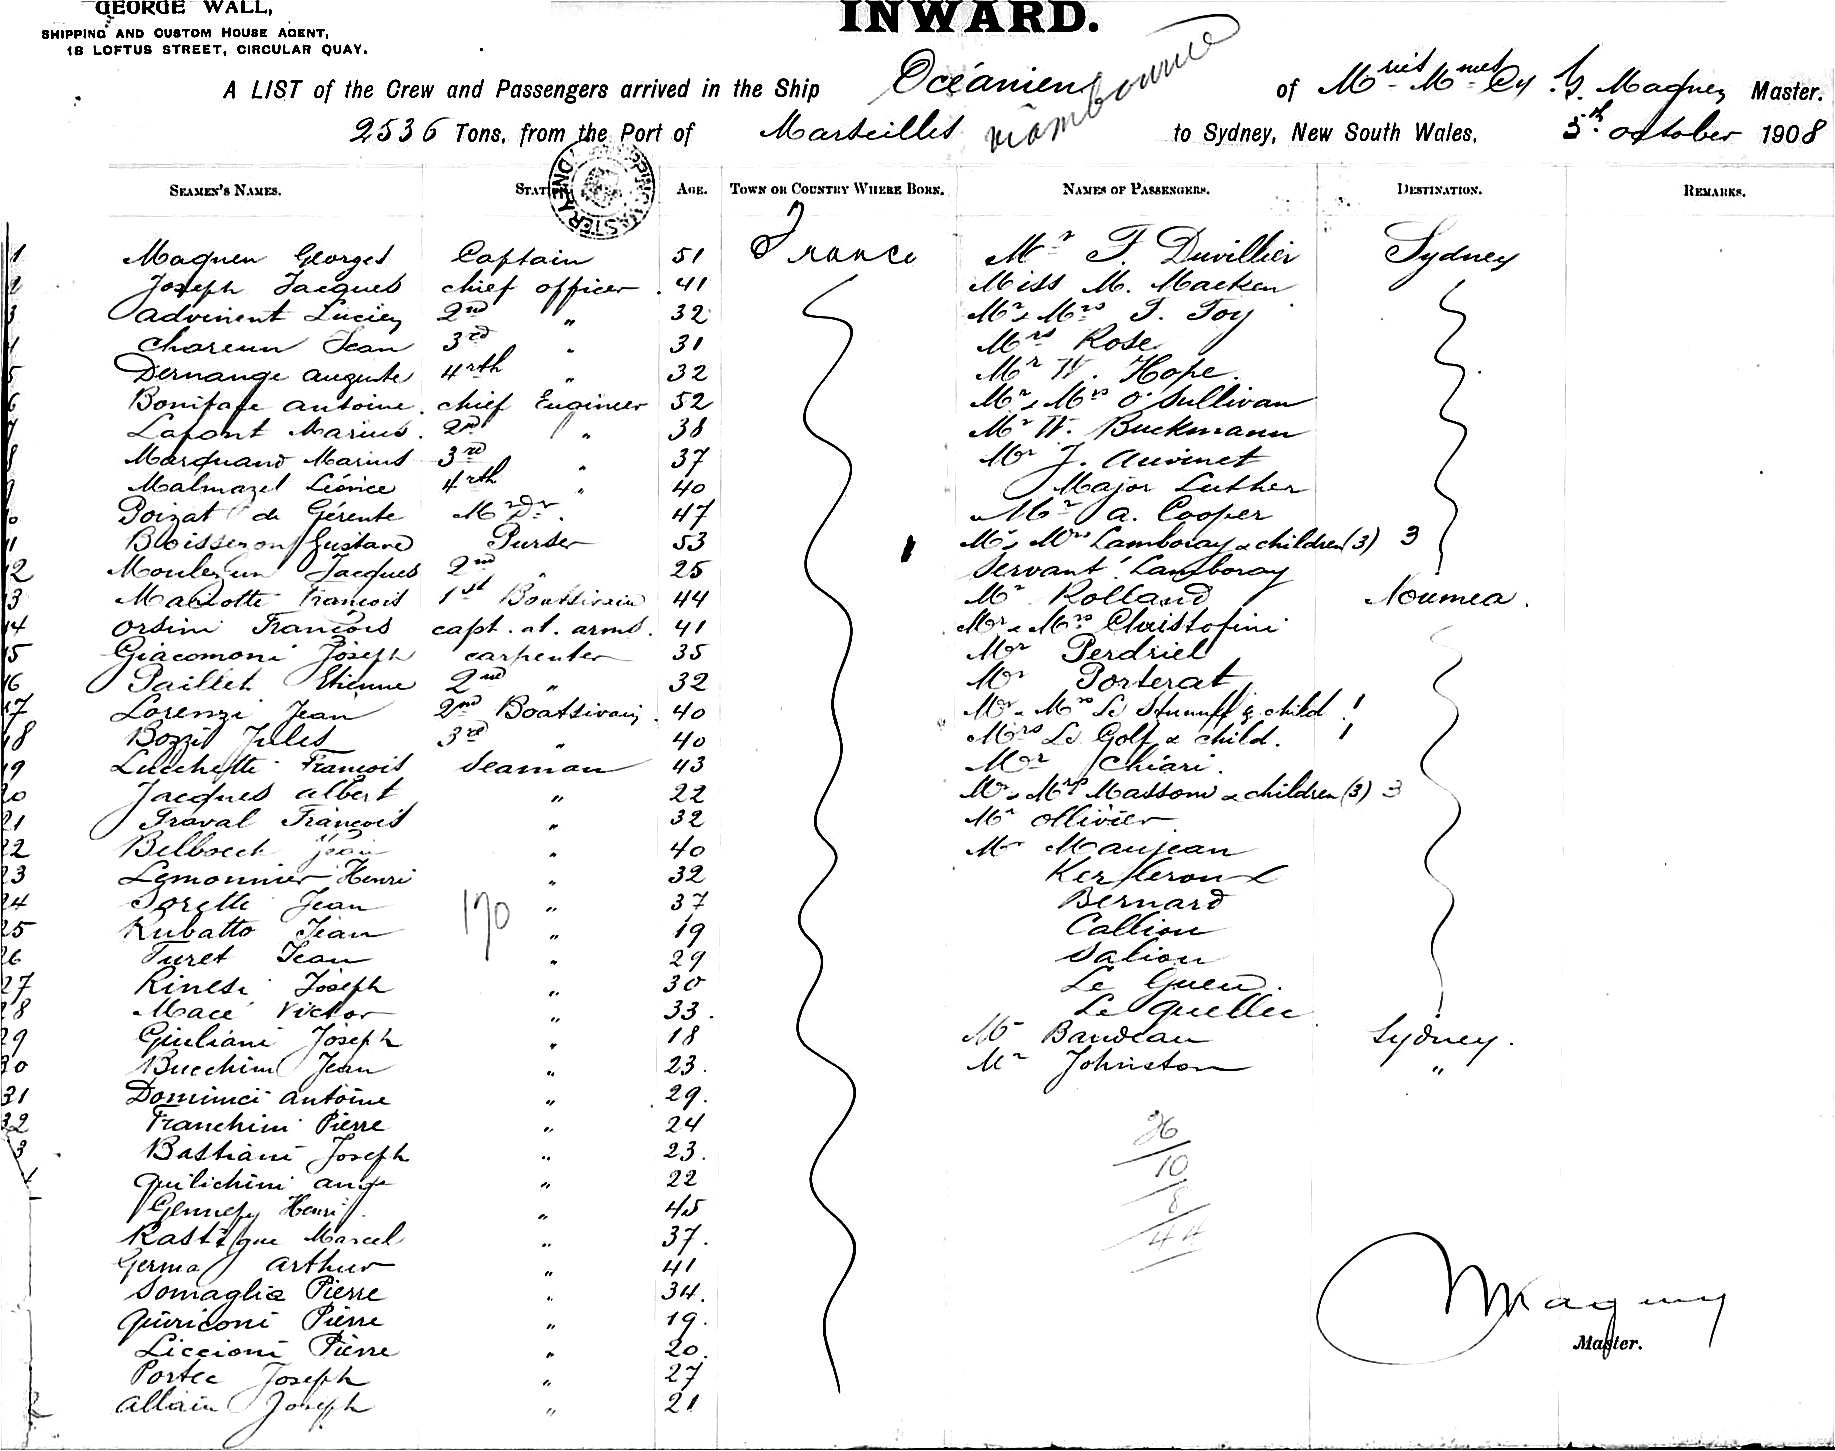 GEORGE WALL,
SHIPPING AND CUSTOM HOUSE AGENT,
18 LOFTUS STREET, CIRCULAR QUAY.
INWARD.
A LIST of the Crew and Passengers arrived in the Ship Océanien of Mries Mmes Cy G. Magnen Master.
2536 Tons, from the Port of Marseilles to Sydney, New South Wales, 5th october 1908
SEAMEN'S NAMES. AGE. TOWN OR COUNTRY WHERE BORN. NAMES OF PASSENGERS. DESTINATION. REMARKS.
1 Magnen Georges Captain 51 France Mr F. Duvillier Sydney
2 Joseph Jacques chief officer 41 Miss M. Macken
3 Advinent Lucien 2nd " 32 Mr & Mrs T. Foy
4 Chareun Jean 3rd " 31 Mrs Rose
5 Dernange auguste 4rth " 32 Mr W. Hope.
6 Boniface antoine. chief Engineer 52 Mr & Mrs O'Sullivan
7 Lafont Marius. 2nd " 38 Mr W. Buckmann
8 Marquand Marius 3rd " 37 Mr J. Auvinet
9 Malmazel Léonce 4rth " 40 Major Luther
10 Poizat de Gérente M Dr. 47 Mr A. Cooper
11 Boisseron Gustave Purser 53 Mr & Mrs Lamboray & children (3) 3
12 Moulezun Jacques 2nd " 25 Servant Lamboray
13 Mariotte François 1st Boatswain 44 Mr Rolland Noumea.
14 Orsini François capt. at. arms. 41 Mr & Mrs Christofini
15 Giacomoni Joseph carpenter 35 Mr Perdriel
16 Paillet Etienne 2nd " 32 Mr Porterat
17 Lorenzi Jean 2nd Boatswain 40 Mr & Mrs Le & child 1
18 Bozzi Jules 3rd " 40 Mrs Le Golf & child. 1
19 Lucchetti François Seaman 43 Mr Chiari.
20 Jacques albert " 22 Mr & Mrs Massoni & children (3) 3
21 Graval François " 32 Mr Ollivier
22 Belboech Jean " 40 Mr Maujean
23 Lemonnier Henri " 32
24 Sorette Jean 170 " 37 Bernard
25 Rubatto Jean " 19 Callion
26 Turet Jean " 29 Salion
27 Rinesi Joseph " 30 Le Guen.
28 Macé Victor " 33. Le Quellec
29 Giuliani Joseph " 18 Mr Baudeau Sydney.
30 Bucchini Jean " 23. Mr Johnston "
31 Dominici antoine " 29.
32 Franchini Pierre " 24
3 Bastiani Joseph " 23.
Quilichini ange " 22
Henri " 45
Rastigue Marcel " 37.
Germa arthur " 41
Somaglia Pierre " 34.
Quiriconi Pierre " 19.
Liccioni Pierre " 20.
Portec Joseph " 27
Allain Joseph " 21
26
10
8
44
Magnen
Master.